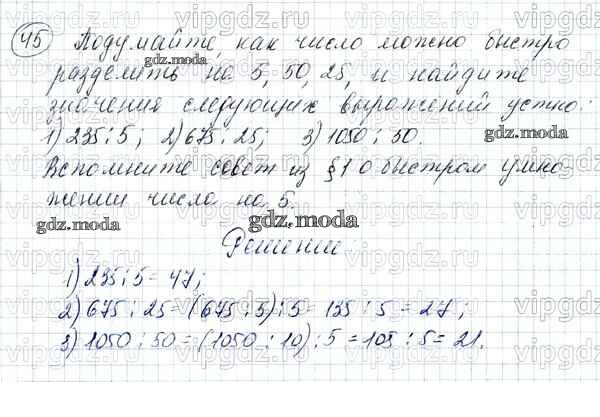 45 Подумайте, как число можно быстро
разделить на 5, 50, 25, и найдите
значения следующих выражений устно:
1) 235 : 5; 2) 675 : 25; 3) 1050 : 50.
Вспомните совет из § 1 о быстром умно-
жении числа на 5.
Решение:
1) 235 : 5 = 47;
2) 675 : 25 = (675 : 5) : 5 = 135 : 5 = 27;
3) 1050 : 50 = (1050 : 10) : 5 = 105 : 5 = 21.
gdz.moda
gdz.moda
gdz.moda
gdz.moda
vipgdz